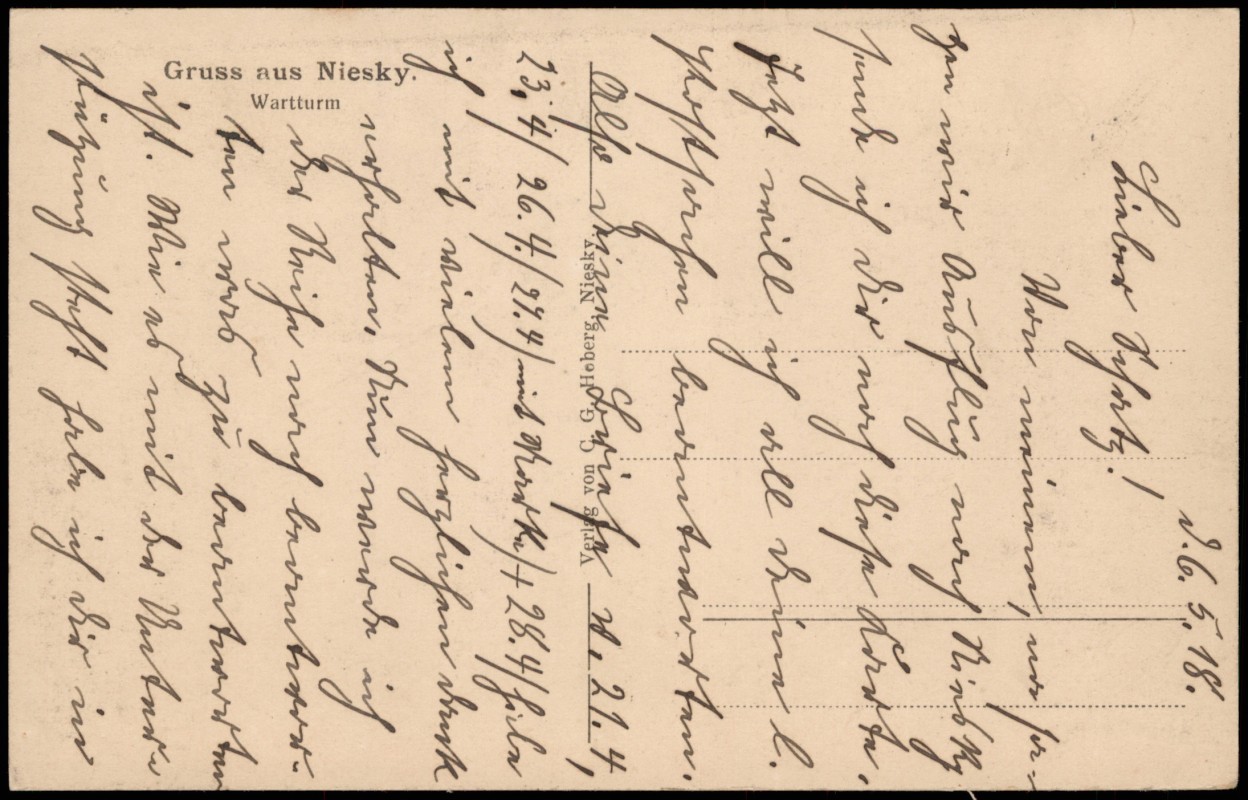 Gruss aus Niesky.
Wartturm
Verlag von C. G. Hoberg, Niesky.
d. 6. 5. 18.
Lieber Schatz!
Von meinem,
Ausflug nach Niesky
sende ich dir noch diese Karte.
Jetzt will ich all deine l.
Postsachen beantworten.
Also deine Briefe v. 21.4,
23.4/ 26.4/ 27.4/ mit Marke/ + 28.4/ habe
ich mit vielem herzlichen Dank
erhalten. Nun werde ich
der Reihe nach beantwor-
ten was zu beantworten
ist. Wie es mit der Unter-
stützung steht habe ich dir im